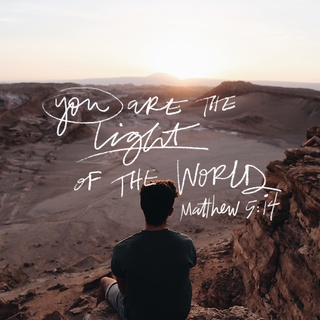 you ARE THE
light
OF THE WORLD
Matthew 5:14